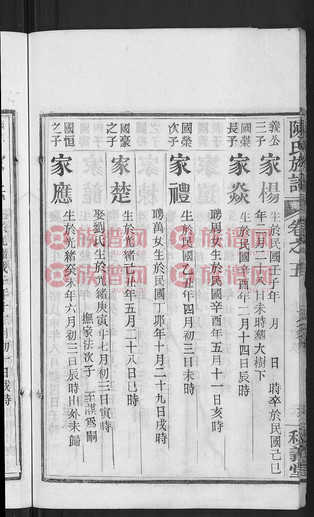 陳氏族譜 卷之五 和義堂
義公三子 家楊 生於民國壬子年 月 日 時卒於民國己巳
年三月二十八日未時葬大樹下
國榮長子 家焱 生於民國辛酉年二月十四日辰時
聘周女生於民國辛酉年五月十一日亥時
國榮次子 家禮 生於民國乙丑年四月初三日未時
聘萬女生於民國丁卯年十月二十九日戌時
國豪之子 家楚 生於光緒己丑年五月二十八日巳時
娶劉氏生於光緒庚寅年七月初三日寅時
撫家法次子 至謹為嗣
國恒之子 家應 生於光緒癸未年六月初三日辰時由外未歸
族譜网